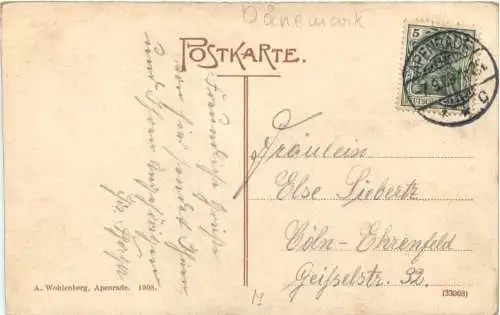 Dänemark
POSTKARTE.
5
APENRADE
Freundliche Grüße
von hier sendet Ihnen
und Ihren Angehörigen
Fräulein
Else Siebertz
Cöln-Ehrenfeld
Geisselstr. 32.
A. Wohlenberg, Apenrade. 1908.
(33008)